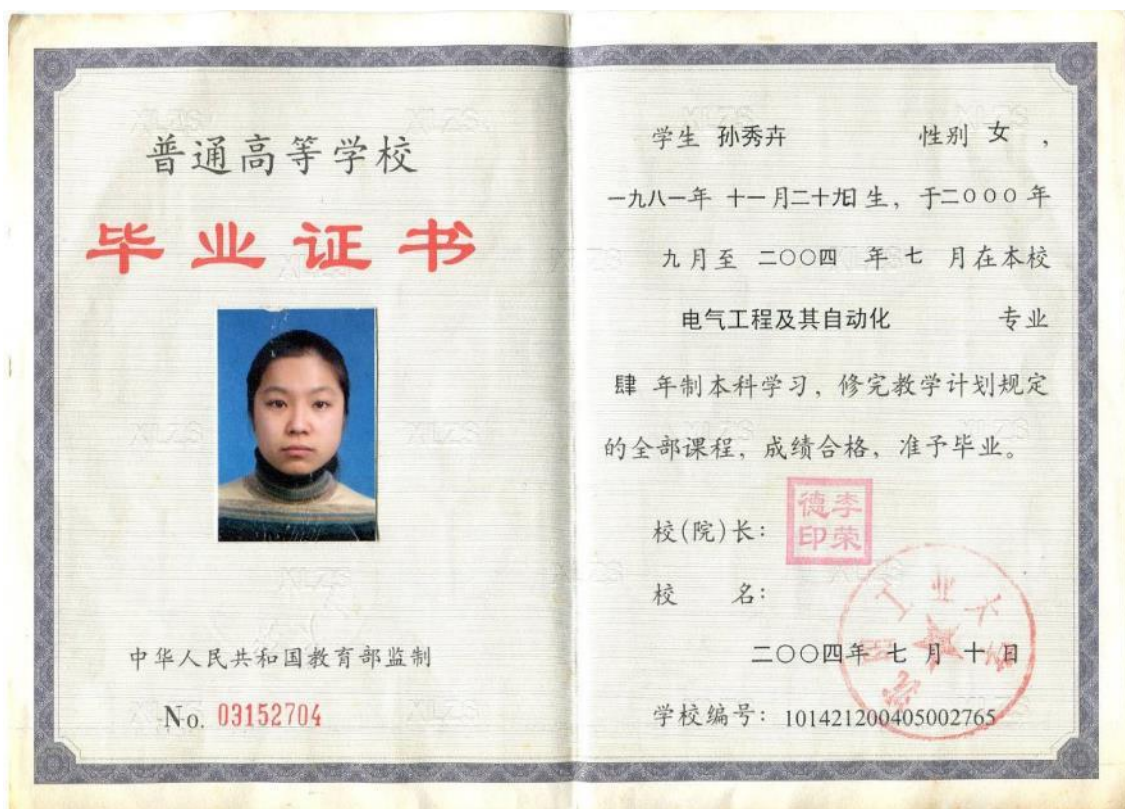 普通高等学校
毕业证书
中华人民共和国教育部监制
No. 03152704
学生 孙秀卉 性别 女 ，
一九八一年 十一月二十九日生，于二000年
九月至 二〇〇四 年 七 月在本校
电气工程及其自动化 专业
肆 年制本科学习，修完教学计划规定
的全部课程，成绩合格，准予毕业。
校(院)长：
李荣德印
校 名：
工业大
二〇〇四年 七 月 十 日
学校编号：101421200405002765